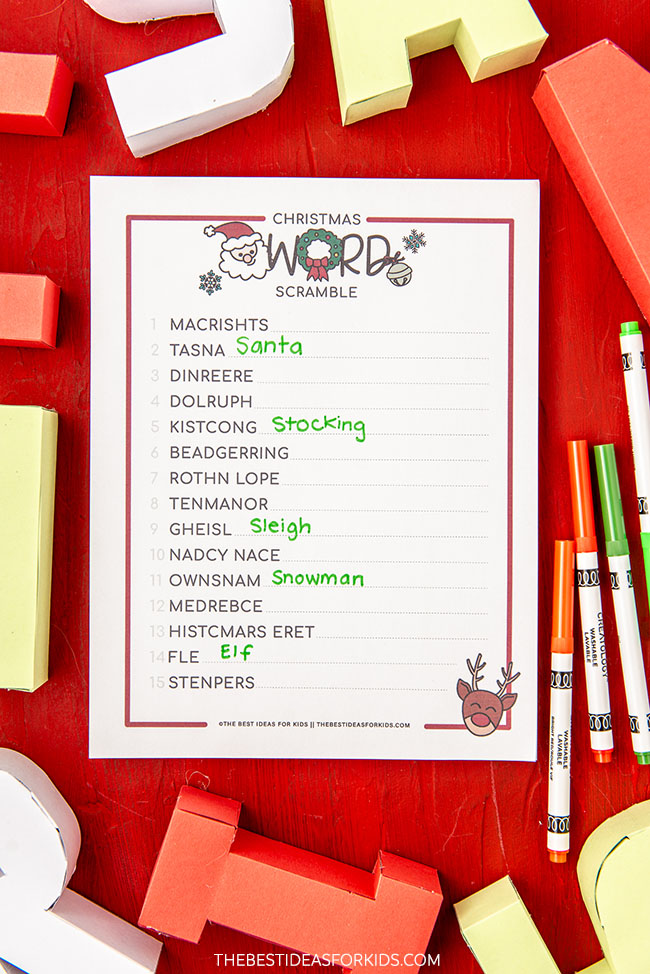 CHRISTMAS
WORD
SCRAMBLE
1 MACRISHTS
2 TASNA Santa
3 DINREERE
4 DOLRUPH
5 KISTCONG Stocking
6 BEADGERRING
7 ROTHN LOPE
8 TENMANOR
9 GHEISL Sleigh
10 NADCY NACE
11 OWNSNAM Snowman
12 MEDREBCE
13 HISTCMARS ERET
14 FLE Elf
15 STENPERS
©THE BEST IDEAS FOR KIDS || THEBESTIDEASFORKIDS.COM
CREATOLOGY
WASHABLE
LAVABLE
WASHABLE
LAVABLE
THEBESTIDEASFORKIDS.COM